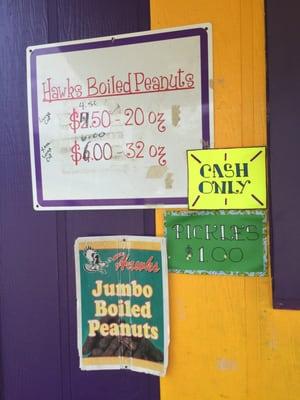 Hawks Boiled Peanuts
4.50
$4.50 - 20 oz
6.00
$6.00 - 32 oz
CASH
ONLY
PICKLES
$1.00
Hawks
Jumbo
Boiled
Peanuts